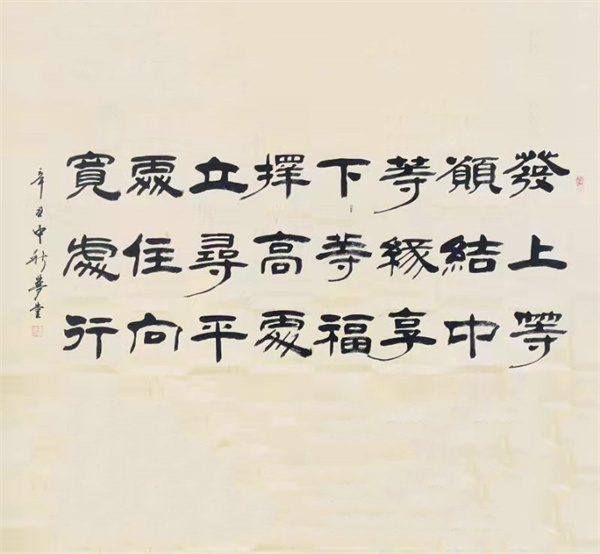 發上等
願結中
等緣享
下等福
擇高處
立尋平
處住向
寬處行
辛丑中秋